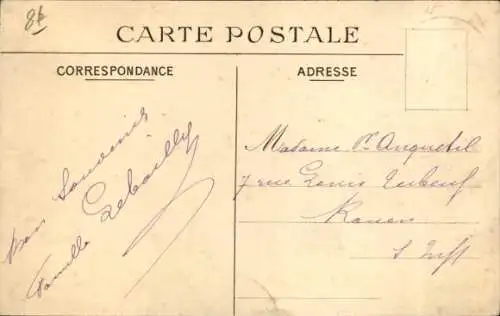 8f
CARTE POSTALE
CORRESPONDANCE
ADRESSE
Bon Souvenir
Famille Lebailly
Madame Vve Anquetil
7 rue Louis
Rouen
S Inf